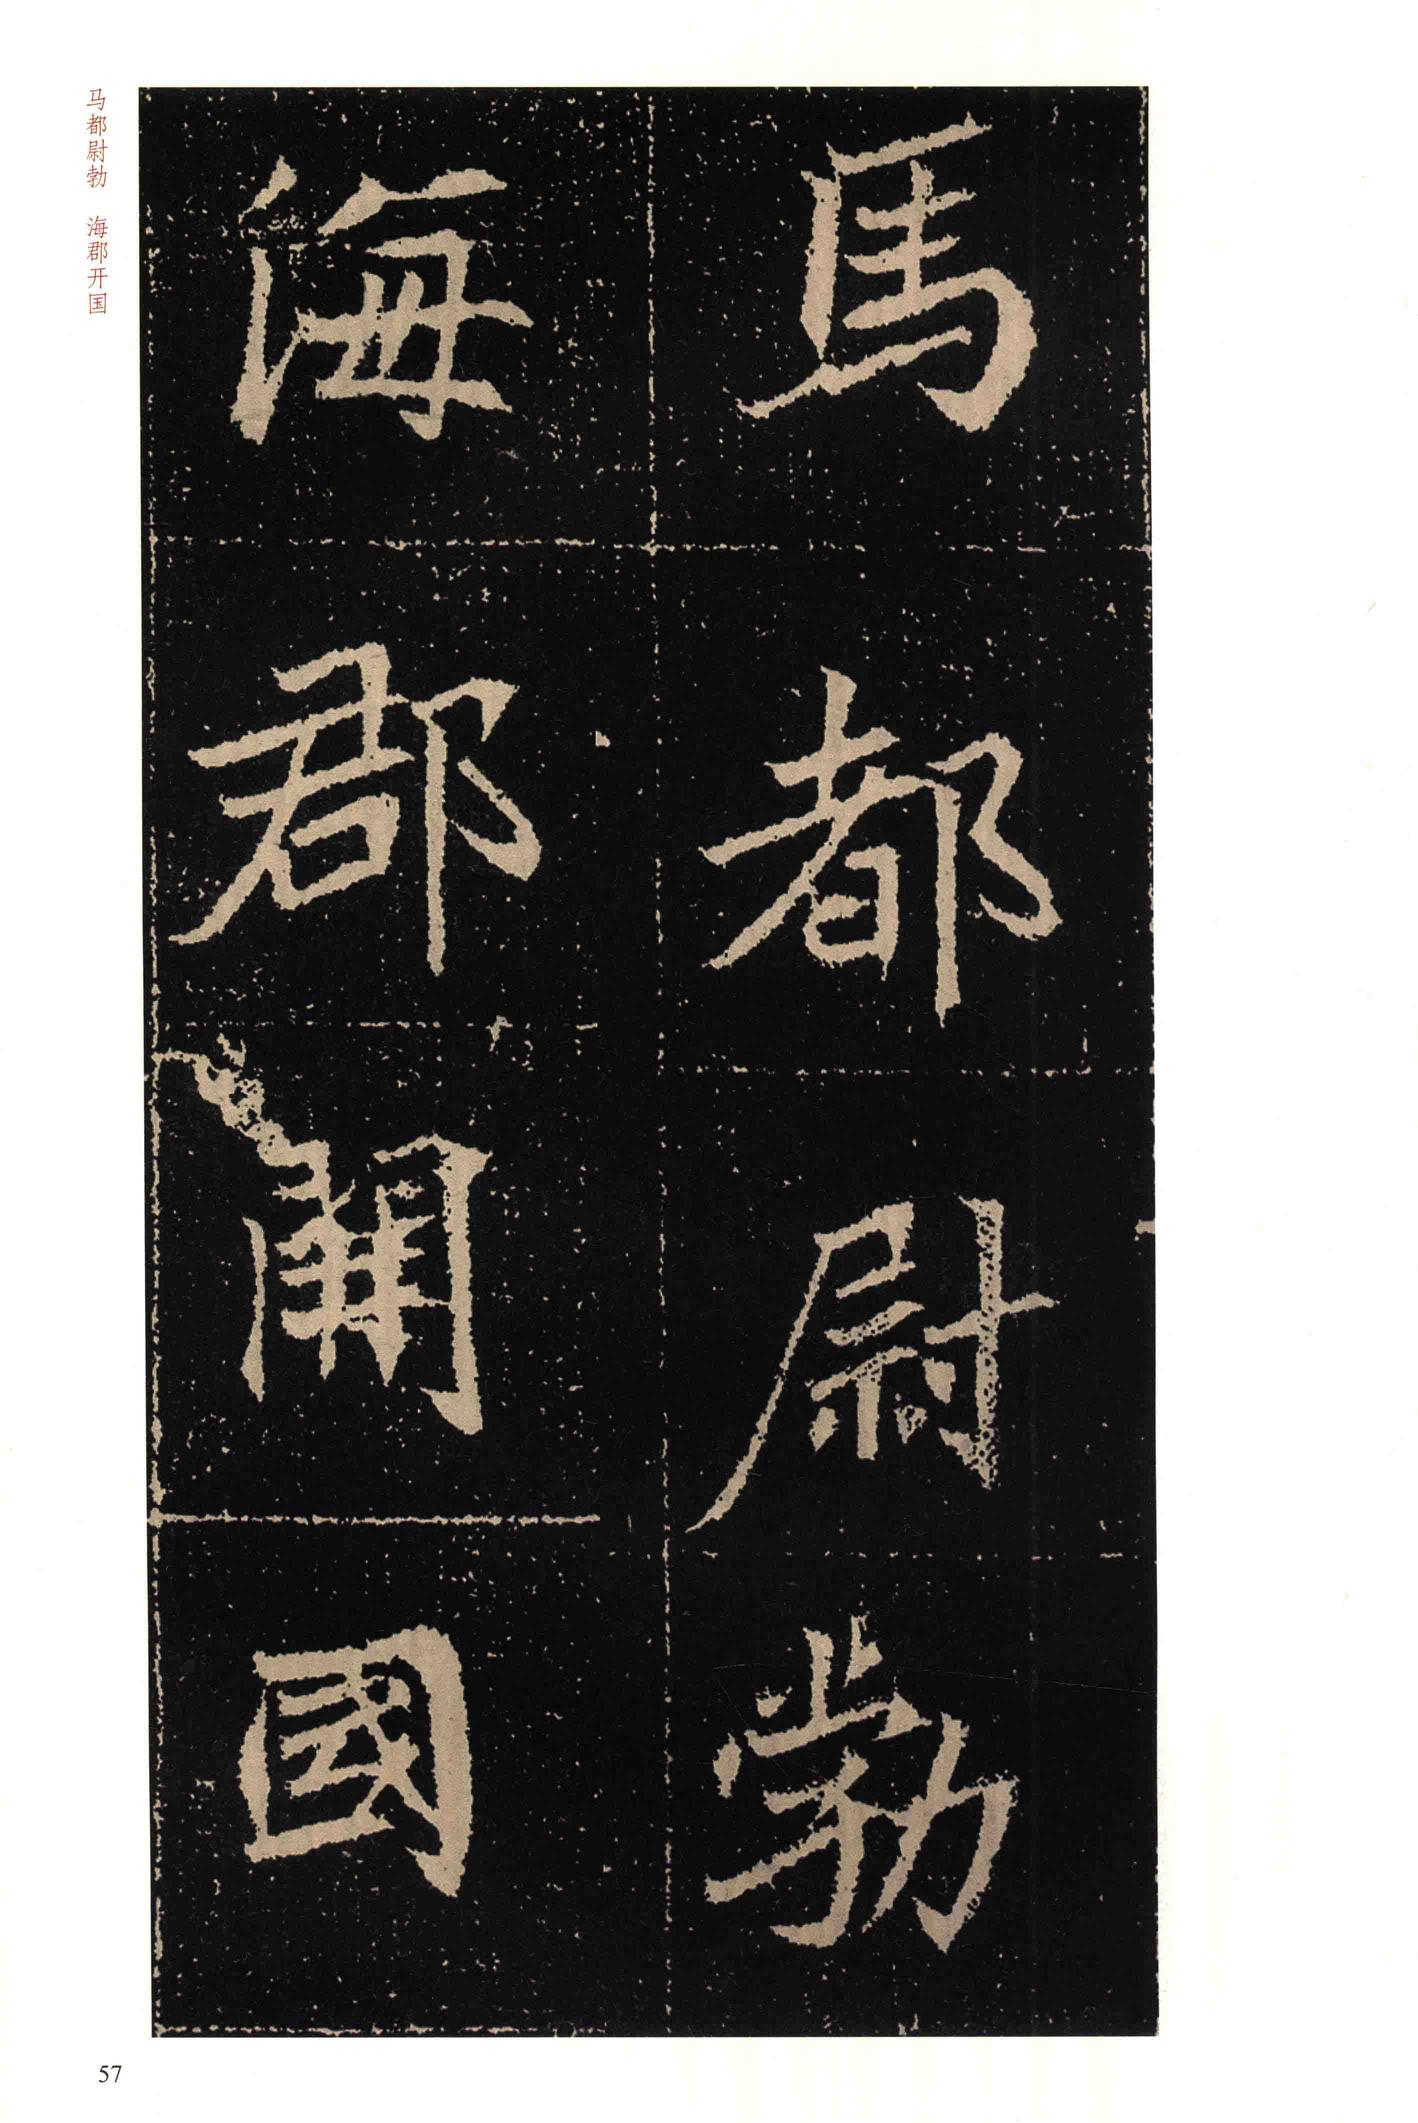 馬都尉勃
海郡開國
马都尉勃 海郡开国
57